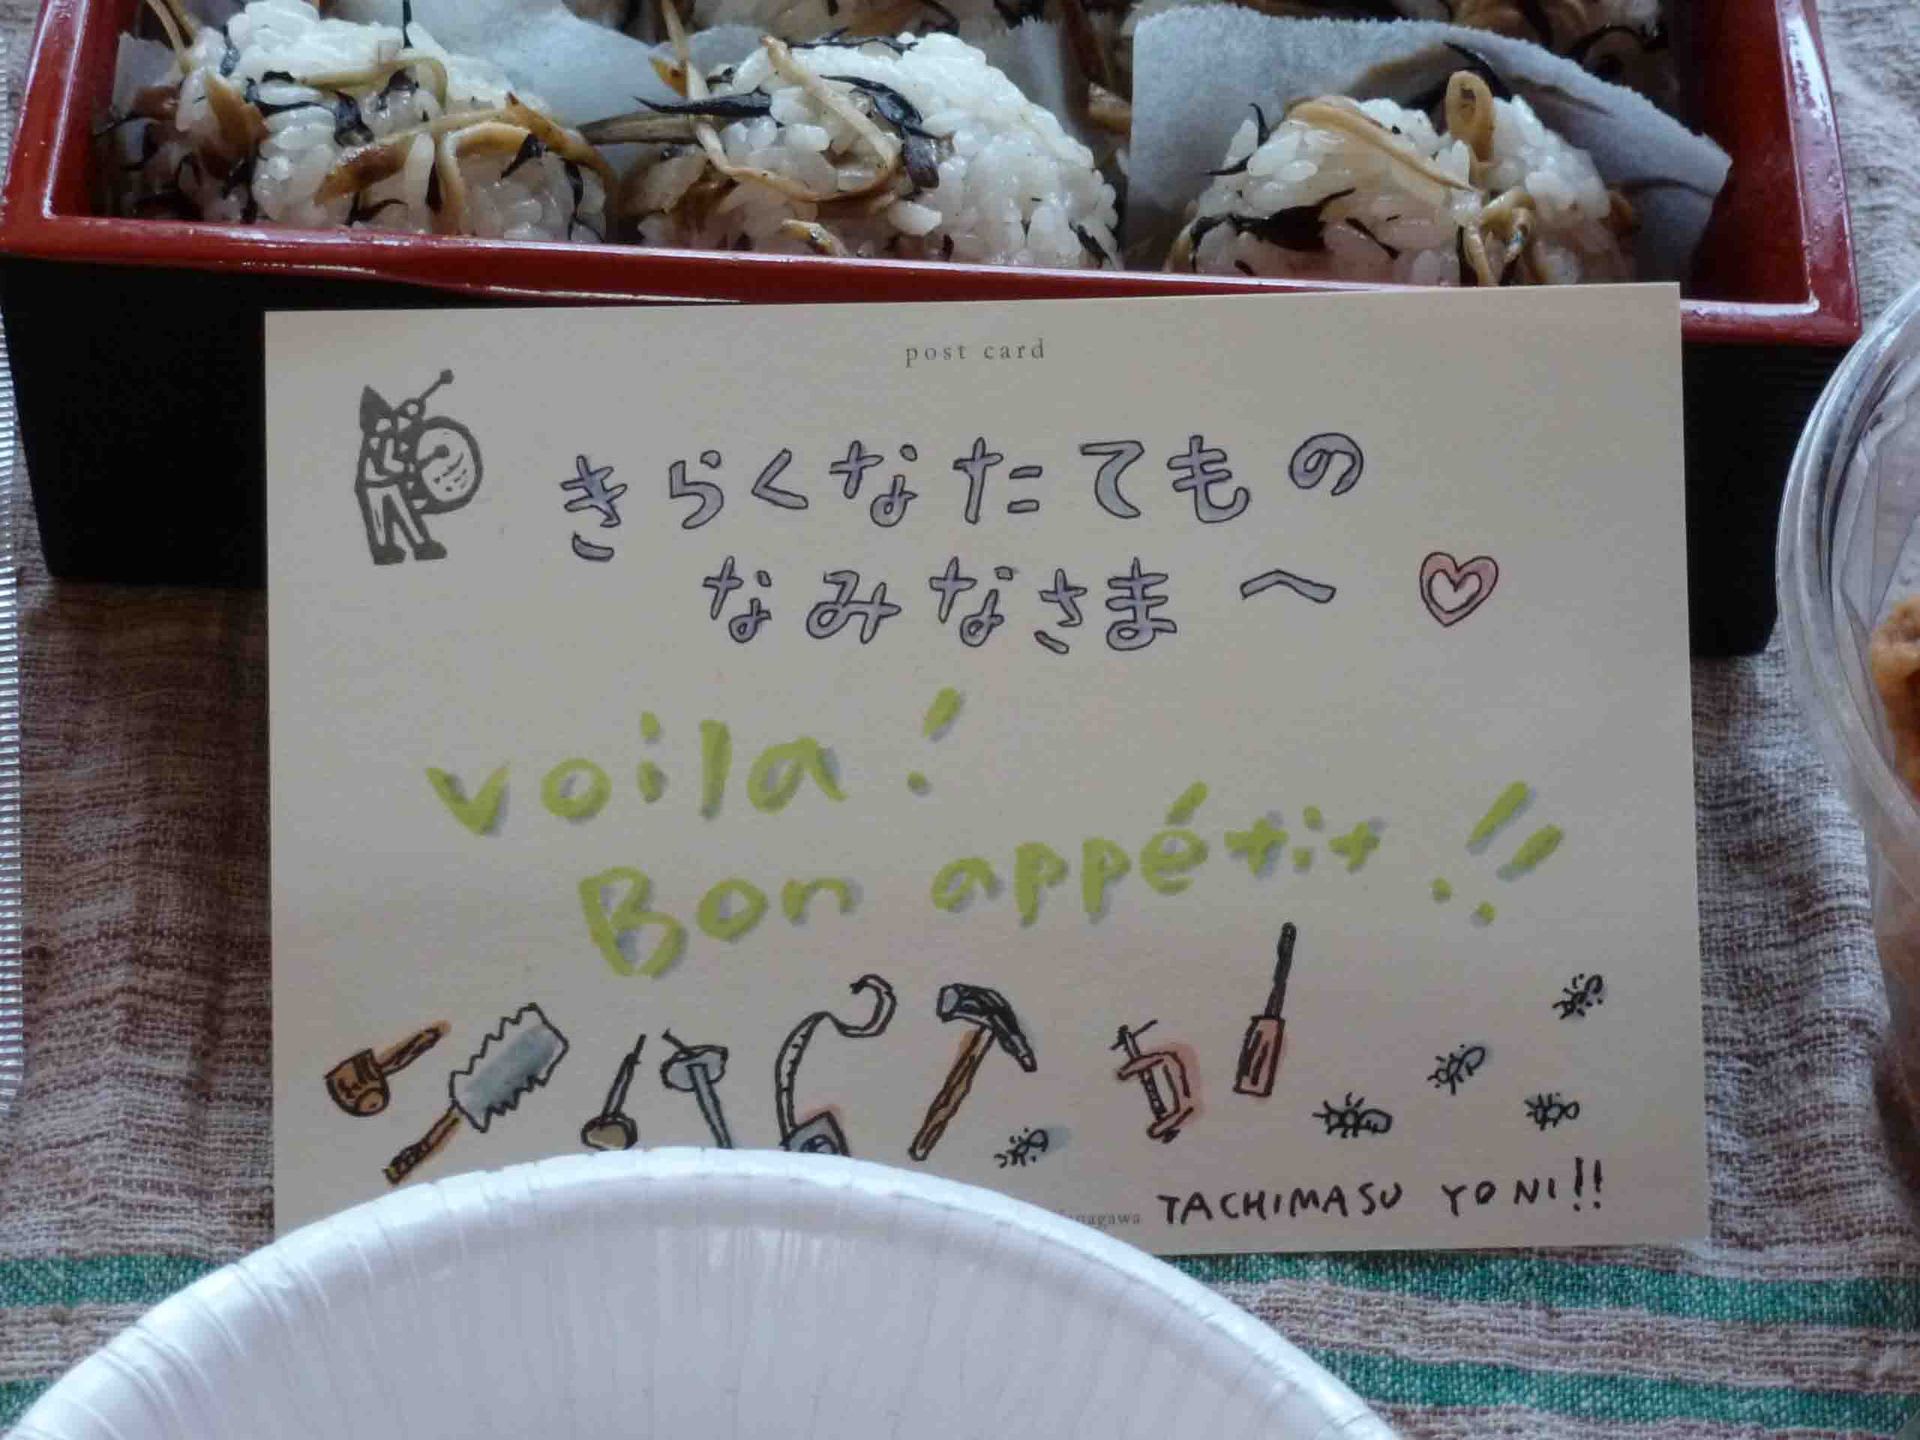 post card
きらくなたてもの
なみなさまへ
voila!
Bon appétit!!
TACHIMASU YONI!!